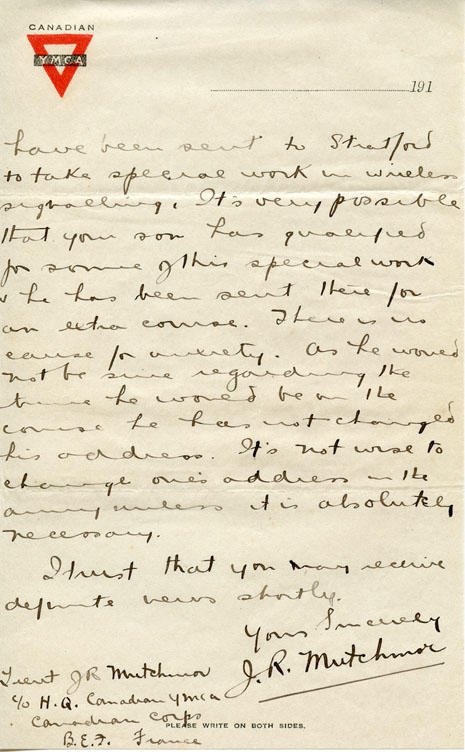 CANADIAN
YMCA
191
have been sent to Stratford
to take special work in wireless
signalling. It's very possible
that your son has qualified
for some of this special work
& he has been sent there for
an extra course. There is no
cause for anxiety. As he would
not be sure regarding the
time he would be on the
course he has not changed
his address. It's not wise to
change one's address in the
army unless it is absolutely
necessary.
I trust that you may receive
definite news shortly.
Yours Sincerely
J. R. Mutchmor
Lieut J R Mutchmor
c/o H. Q. Canadian YMCA
Canadian Corps
B.E.F. France
PLEASE WRITE ON BOTH SIDES.